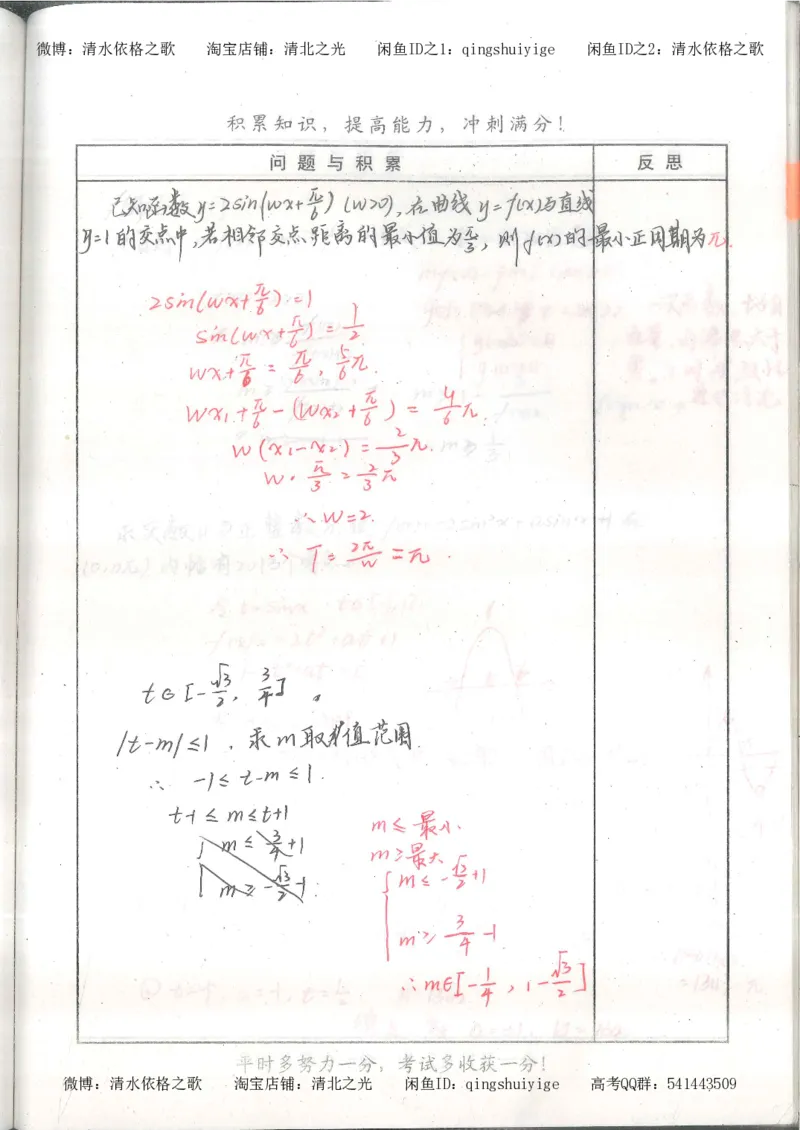 微博：清水依格之歌 淘宝店铺：清北之光 闲鱼ID之1：qingshuiyige 闲鱼ID之2：清水依格之歌
积累知识，提高能力，冲刺满分！
问 题 与 积 累 反 思
已知函数y=2sin(wx+π/6) (w>0), 在曲线 y=f(x)与直线
y=1的交点中,若相邻交点距离的最小值为π/3, 则f(x)的最小正周期为π.
2sin(wx+π/6)=1
sin(wx+π/6)=1/2
wx+π/6=π/6, 5/6π.
wx₁+π/6-(wx₂+π/6)=4/6π.
w(x₁-x₂)=2/3π.
w·π/3=2/3π
∴w=2.
∴ T=2π/w=π.
t∈[-√3/2, 3/4].
|t-m|≤1, 求m取值范围.
∴ -1≤t-m≤1.
t-1≤m≤t+1
m≤3/4+1
m≥-√3/2-1.
m≤最小.
m≥最大
m≤-√3/2+1
m≥3/4-1
∴m∈[-1/4, 1-√3/2]
平时多努力一分，考试多收获一分！
微博：清水依格之歌 淘宝店铺：清北之光 闲鱼ID：qingshuiyige 高考QQ群：541443509